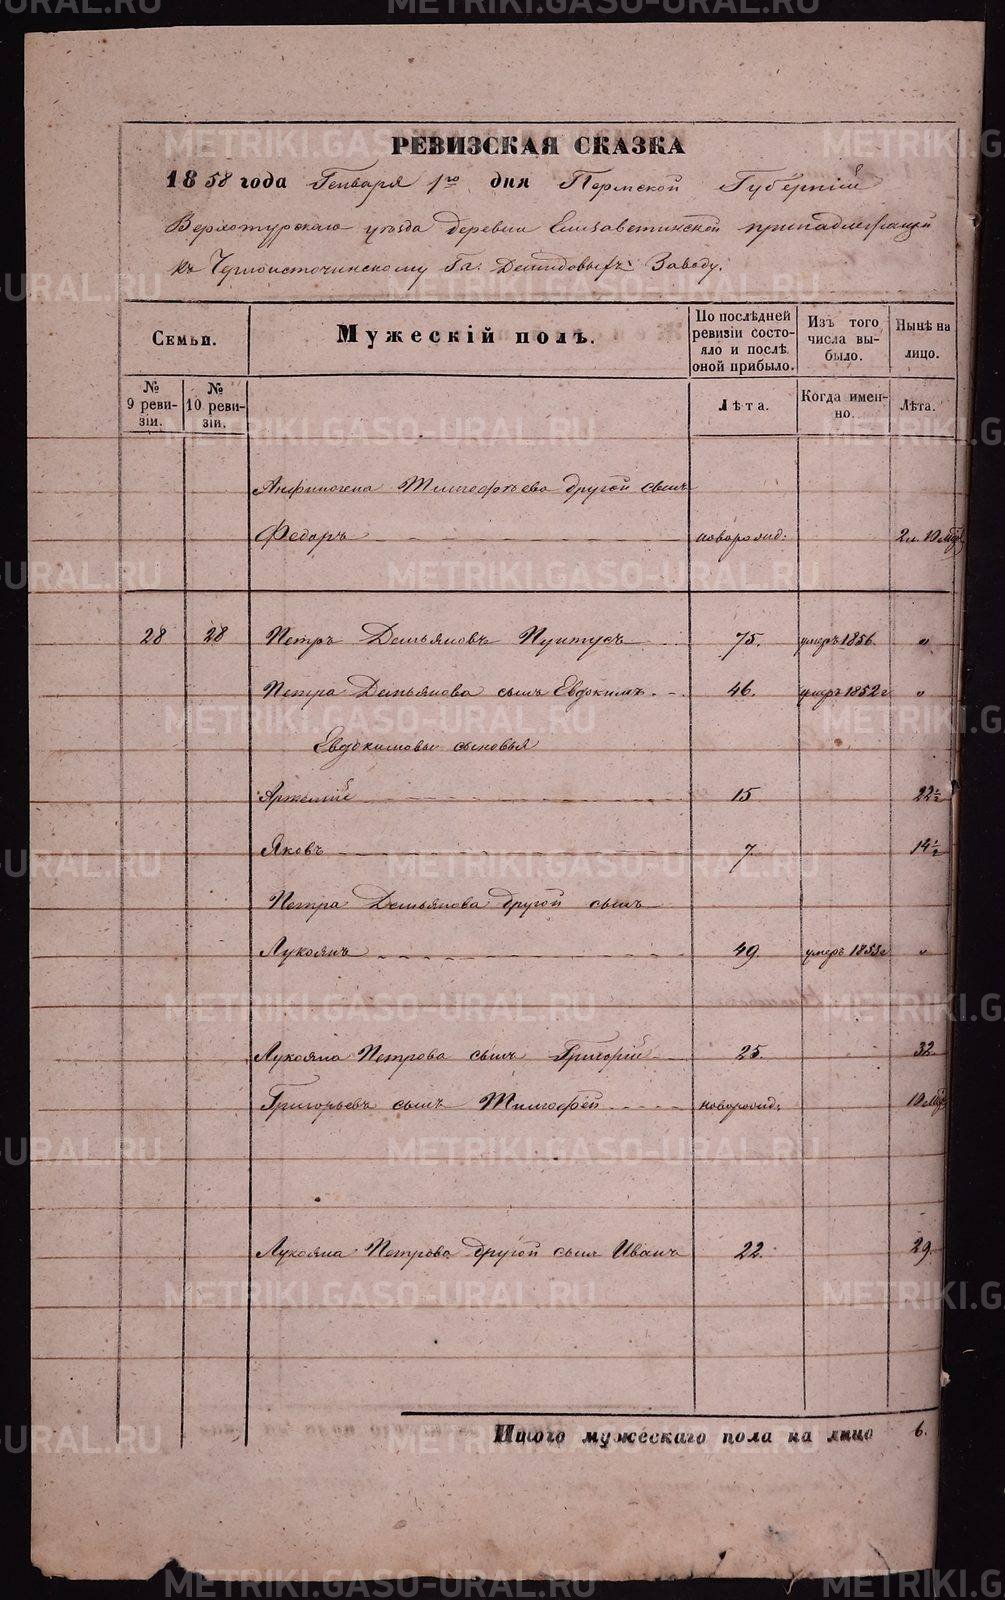 РЕВИЗСКАЯ СКАЗКА
1858 года Генваря 1го дня Пермской Губерніи
Верхотурскаго уѣзда деревни Елизаветинской принадлежащей
къ Черноисточинскому Гг. Демидовыхъ Заводу.
Семьи.
Мужескій полъ.
По послѣдней ревизіи состояло и послѣ оной прибыло.
Изъ того числа выбыло.
Нынѣ на лицо.
№ 9 ревизіи.
№ 10 ревизіи.
Лѣта.
Когда именно.
Лѣта.
Анфиногена Тимофѣева другой сынъ
Федоръ новорожд: 2 л. 10 мѣс
28 28 Петръ Демьяновъ 75. умеръ 1856. "
Петра Демьянова сынъ Евдокимъ 46. умеръ 1852 г "
Евдокимовы сыновья
Артемій 15 22 1/2
Яковъ 7. 14 1/2
Петра Демьянова другой сынъ
Лукоянъ 49. умеръ "
Лукояна Петрова сынъ Григорій 25. 32.
Григорьевъ сынъ Тимофей новорожд: 10 мѣс
Лукояна Петрова другой сынъ Иванъ 22. 29.
Итого мужескаго пола на лицо 6.
METRIKI.GASO-URAL.RU